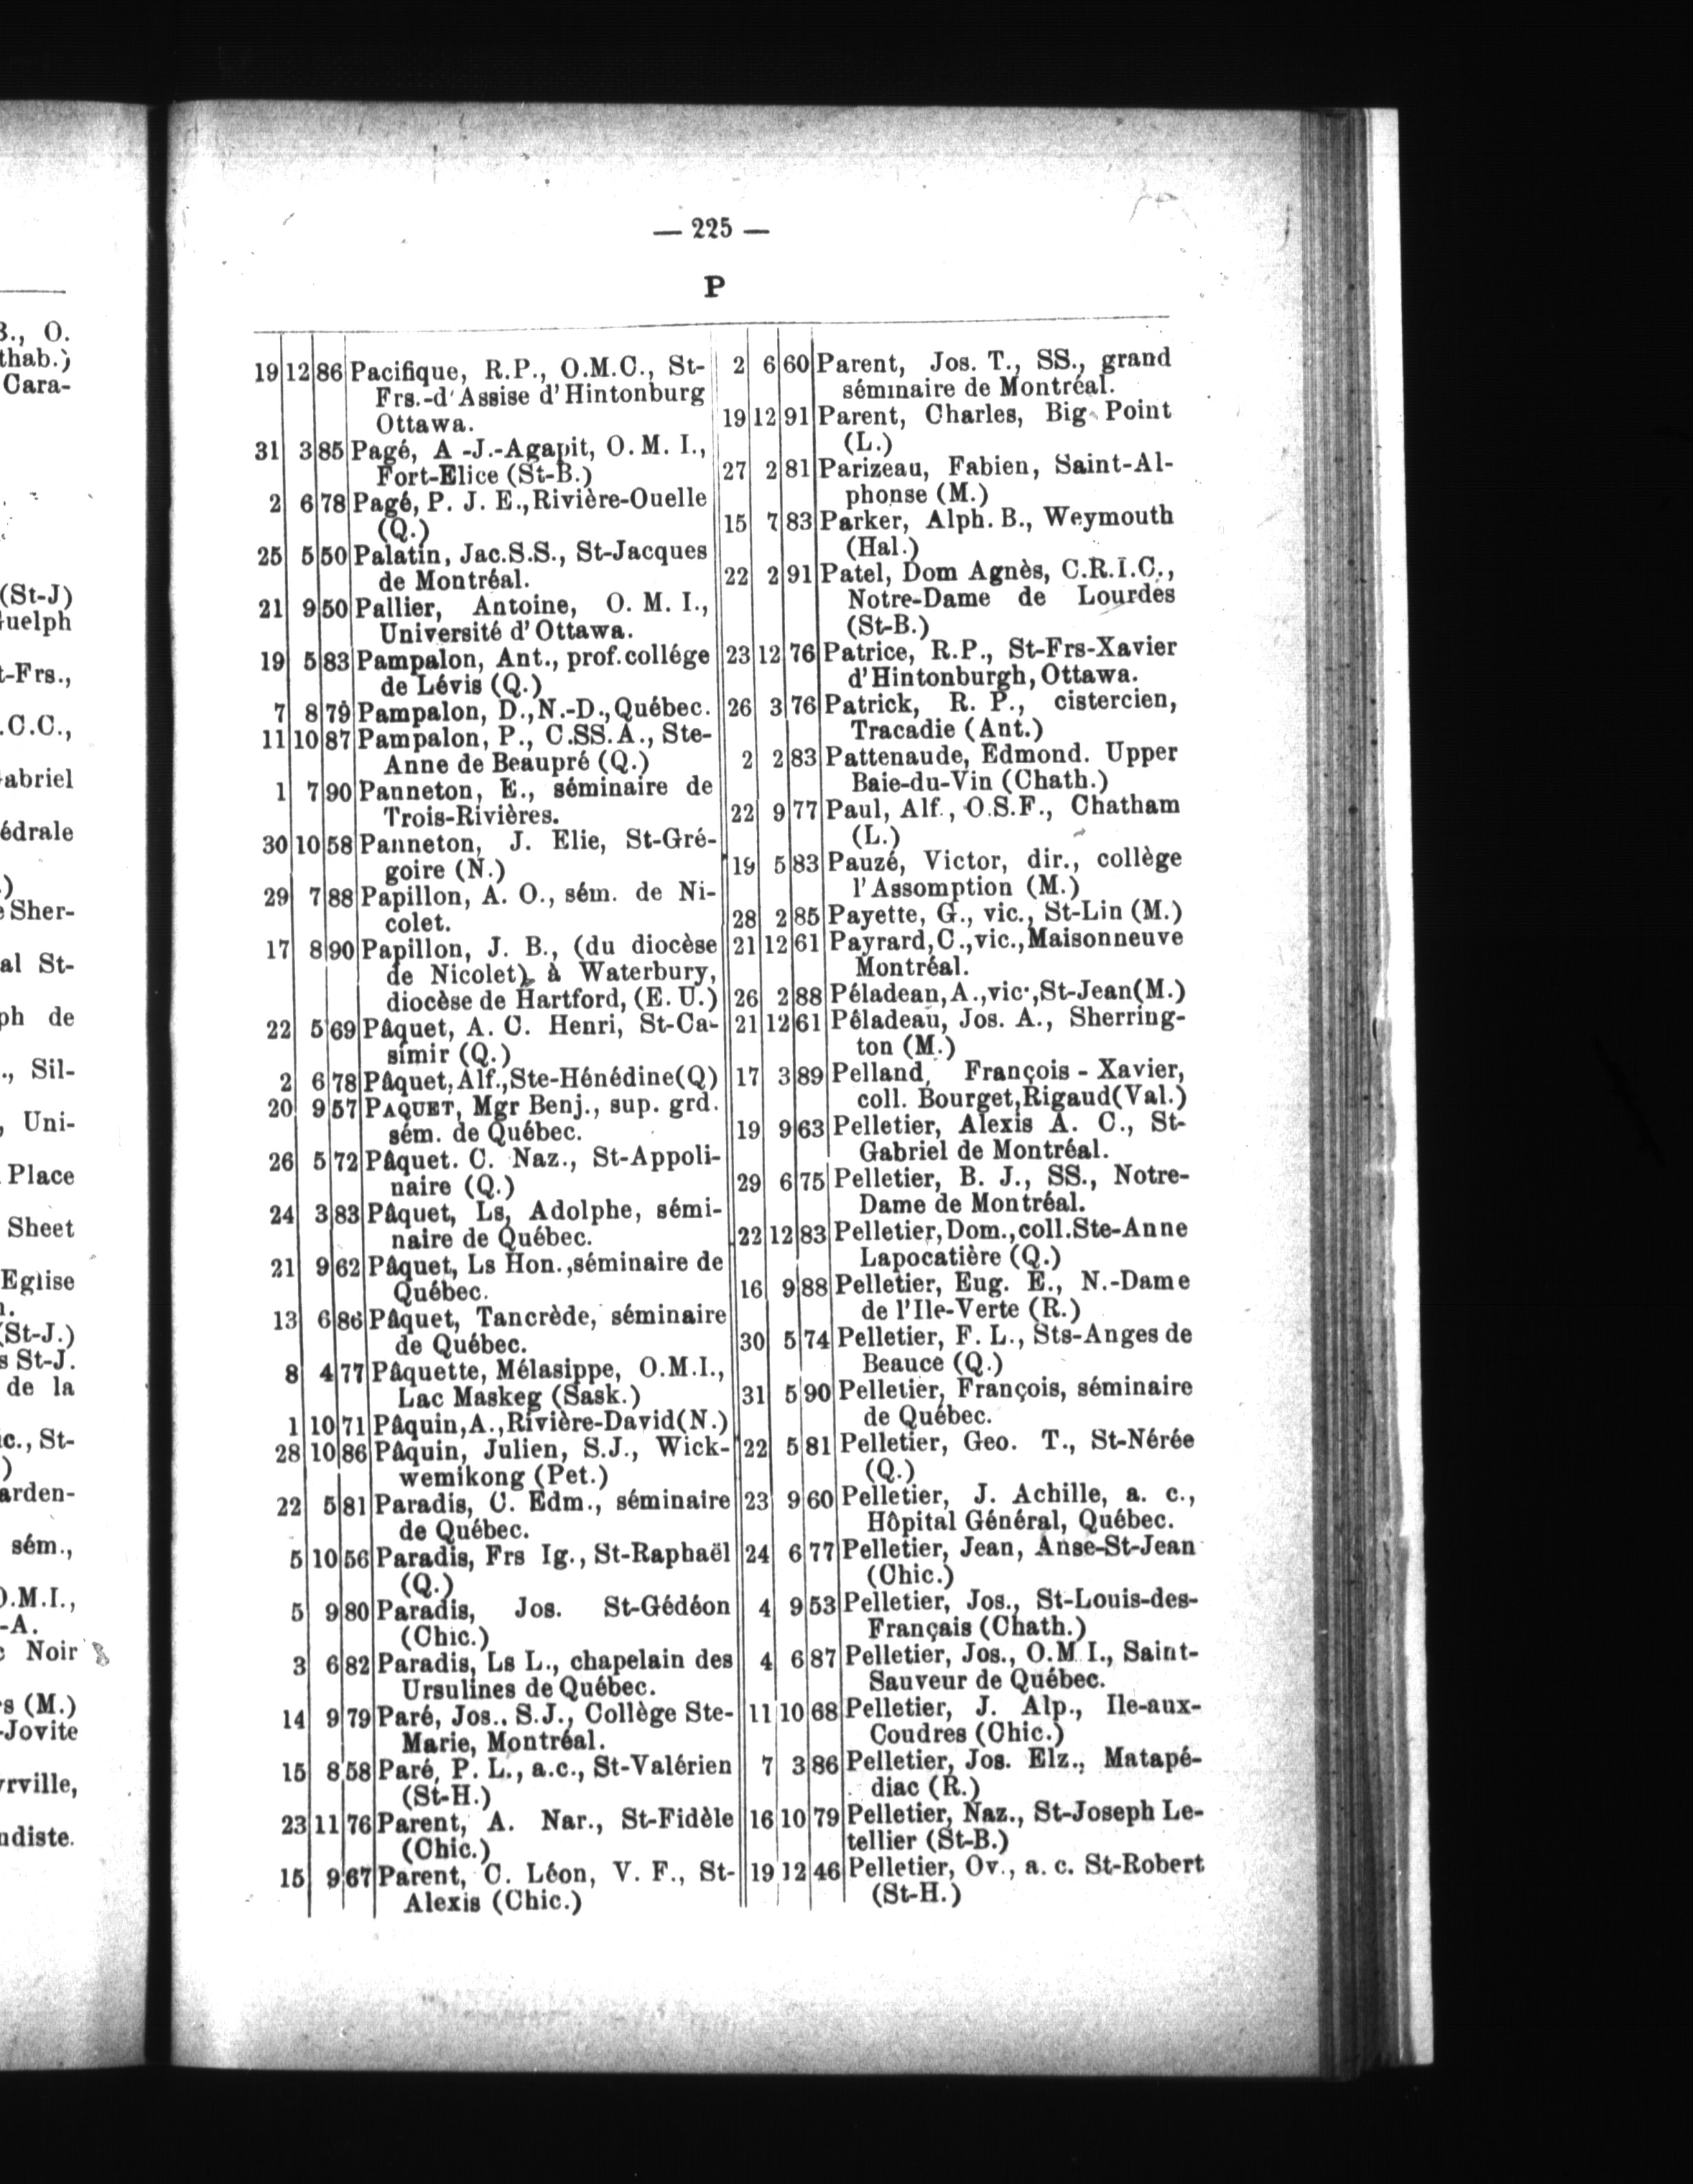 B., O.
thab.)
Cara-
(St-J)
Guelph
t-Frs.,
.C.C.,
Gabriel
édrale
.)
e Sher-
al St-
ph de
., Sil-
, Uni-
Place
Sheet
Eglise
(St-J.)
s St-J.
de la
ic., St-
)
arden-
sém.,
O.M.I.,
-A.
c Noir
s (M.)
-Jovite
rville,
ndiste.
— 225 —
P
19 12 86 Pacifique, R.P., O.M.C., St-
Frs.-d'Assise d'Hintonburg
Ottawa.
31 3 85 Pagé, A -J.-Agapit, O. M. I.,
Fort-Elice (St-B.)
2 6 78 Pagé, P. J. E., Rivière-Ouelle
(Q.)
25 5 50 Palatin, Jac.S.S., St-Jacques
de Montréal.
21 9 50 Pallier, Antoine, O. M. I.,
Université d'Ottawa.
19 5 83 Pampalon, Ant., prof.collége
de Lévis (Q.)
7 8 79 Pampalon, D., N.-D., Québec.
11 10 87 Pampalon, P., C.SS.A., Ste-
Anne de Beaupré (Q.)
1 7 90 Panneton, E., séminaire de
Trois-Rivières.
30 10 58 Panneton, J. Elie, St-Gré-
goire (N.)
29 7 88 Papillon, A. O., sém. de Ni-
colet.
17 8 90 Papillon, J. B., (du diocèse
de Nicolet), à Waterbury,
diocèse de Hartford, (E. U.)
22 5 69 Pâquet, A. C. Henri, St-Ca-
simir (Q.)
2 6 78 Pâquet, Alf., Ste-Hénédine(Q)
20 9 57 PAQUET, Mgr Benj., sup. grd.
sém. de Québec.
26 5 72 Pâquet. C. Naz., St-Appoli-
naire (Q.)
24 3 83 Pâquet, Ls, Adolphe, sémi-
naire de Québec.
21 9 62 Pâquet, Ls Hon., séminaire de
Québec.
13 6 86 Pâquet, Tancrède, séminaire
de Québec.
8 4 77 Pâquette, Mélasippe, O.M.I.,
Lac Maskeg (Sask.)
1 10 71 Pâquin, A., Rivière-David(N.)
28 10 86 Pâquin, Julien, S.J., Wick-
wemikong (Pet.)
22 5 81 Paradis, C. Edm., séminaire
de Québec.
5 10 56 Paradis, Frs Ig., St-Raphaël
(Q.)
5 9 80 Paradis, Jos. St-Gédéon
(Chic.)
3 6 82 Paradis, Ls L., chapelain des
Ursulines de Québec.
14 9 79 Paré, Jos.. S.J., Collège Ste-
Marie, Montréal.
15 8 58 Paré, P. L., a.c., St-Valérien
(St-H.)
23 11 76 Parent, A. Nar., St-Fidèle
(Chic.)
15 9 67 Parent, C. Léon, V. F., St-
Alexis (Chic.)
2 6 60 Parent, Jos. T., SS., grand
séminaire de Montréal.
19 12 91 Parent, Charles, Big Point
(L.)
27 2 81 Parizeau, Fabien, Saint-Al-
phonse (M.)
15 7 83 Parker, Alph. B., Weymouth
(Hal.)
22 2 91 Patel, Dom Agnès, C.R.I.C.,
Notre-Dame de Lourdes
(St-B.)
23 12 76 Patrice, R.P., St-Frs-Xavier
d'Hintonburgh, Ottawa.
26 3 76 Patrick, R. P., cistercien,
Tracadie (Ant.)
2 2 83 Pattenaude, Edmond. Upper
Baie-du-Vin (Chath.)
22 9 77 Paul, Alf., O.S.F., Chatham
(L.)
19 5 83 Pauzé, Victor, dir., collège
l'Assomption (M.)
28 2 85 Payette, G., vic., St-Lin (M.)
21 12 61 Payrard, C., vic., Maisonneuve
Montréal.
26 2 88 Péladean, A., vic·, St-Jean(M.)
21 12 61 Péladeau, Jos. A., Sherring-
ton (M.)
17 3 89 Pelland, François - Xavier,
coll. Bourget, Rigaud(Val.)
19 9 63 Pelletier, Alexis A. C., St-
Gabriel de Montréal.
29 6 75 Pelletier, B. J., SS., Notre-
Dame de Montréal.
22 12 83 Pelletier, Dom., coll.Ste-Anne
Lapocatière (Q.)
16 9 88 Pelletier, Eug. E., N.-Dame
de l'Ile-Verte (R.)
30 5 74 Pelletier, F. L., Sts-Anges de
Beauce (Q.)
31 5 90 Pelletier, François, séminaire
de Québec.
22 5 81 Pelletier, Geo. T., St-Nérée
(Q.)
23 9 60 Pelletier, J. Achille, a. c.,
Hôpital Général, Québec.
24 6 77 Pelletier, Jean, Anse-St-Jean
(Chic.)
4 9 53 Pelletier, Jos., St-Louis-des-
Français (Chath.)
4 6 87 Pelletier, Jos., O.M.I., Saint-
Sauveur de Québec.
11 10 68 Pelletier, J. Alp., Ile-aux-
Coudres (Chic.)
7 3 86 Pelletier, Jos. Elz., Matapé-
diac (R.)
16 10 79 Pelletier, Naz., St-Joseph Le-
tellier (St-B.)
19 12 46 Pelletier, Ov., a. c. St-Robert
(St-H.)